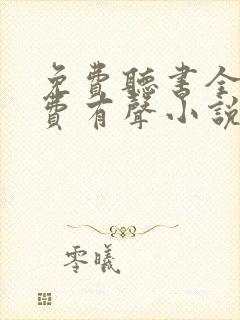 免費聽書全
費有聲小說
零曦